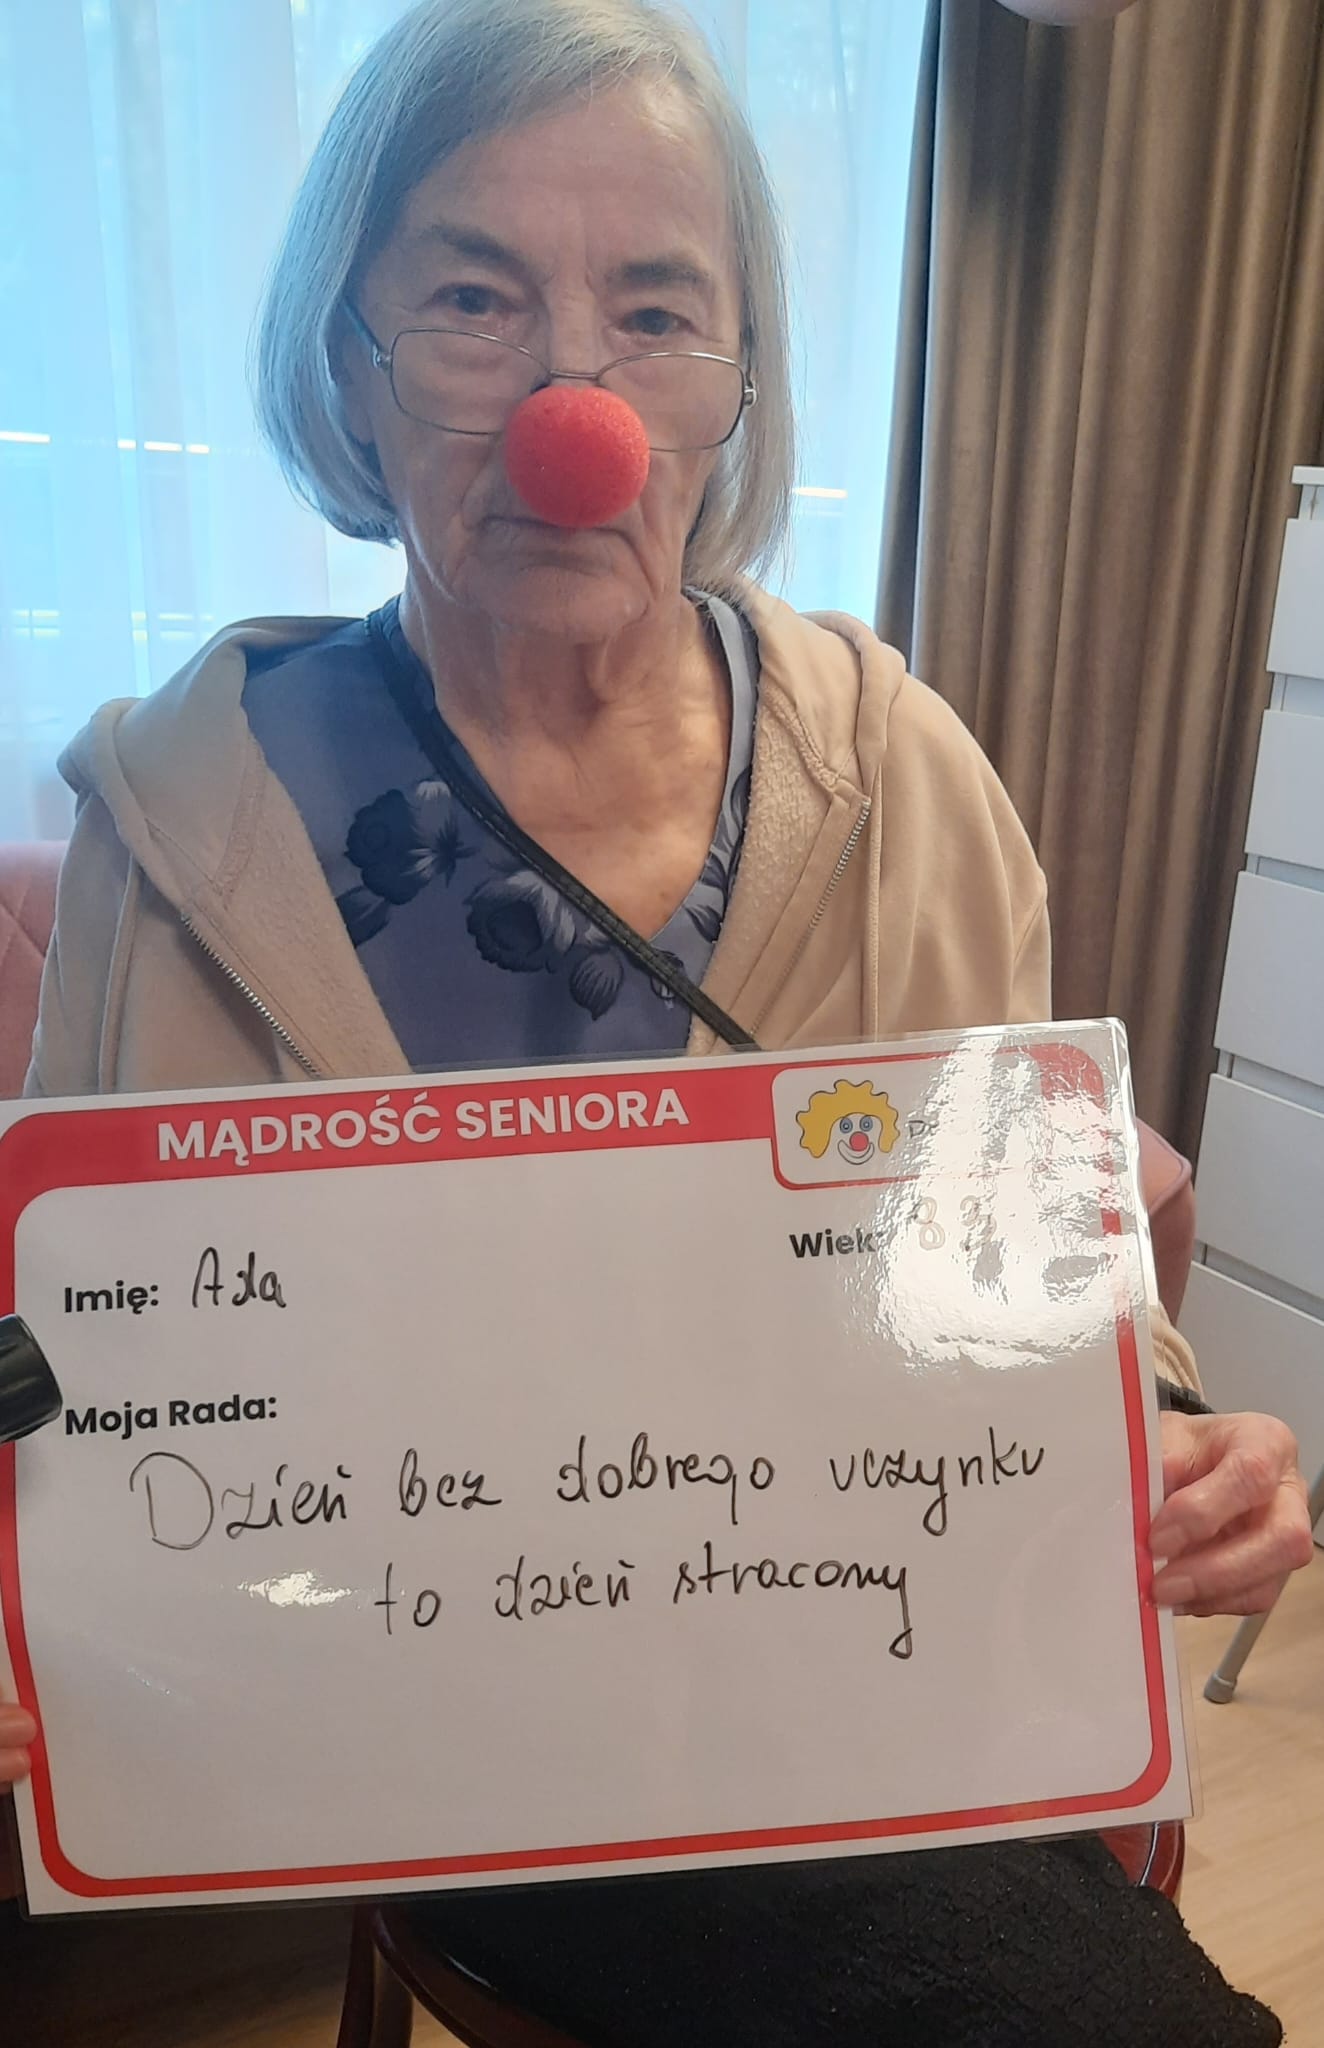 MĄDROŚĆ SENIORA
Wiek: 83
Imię: Ada
Moja Rada:
Dzień bez dobrego uczynku
to dzień stracony